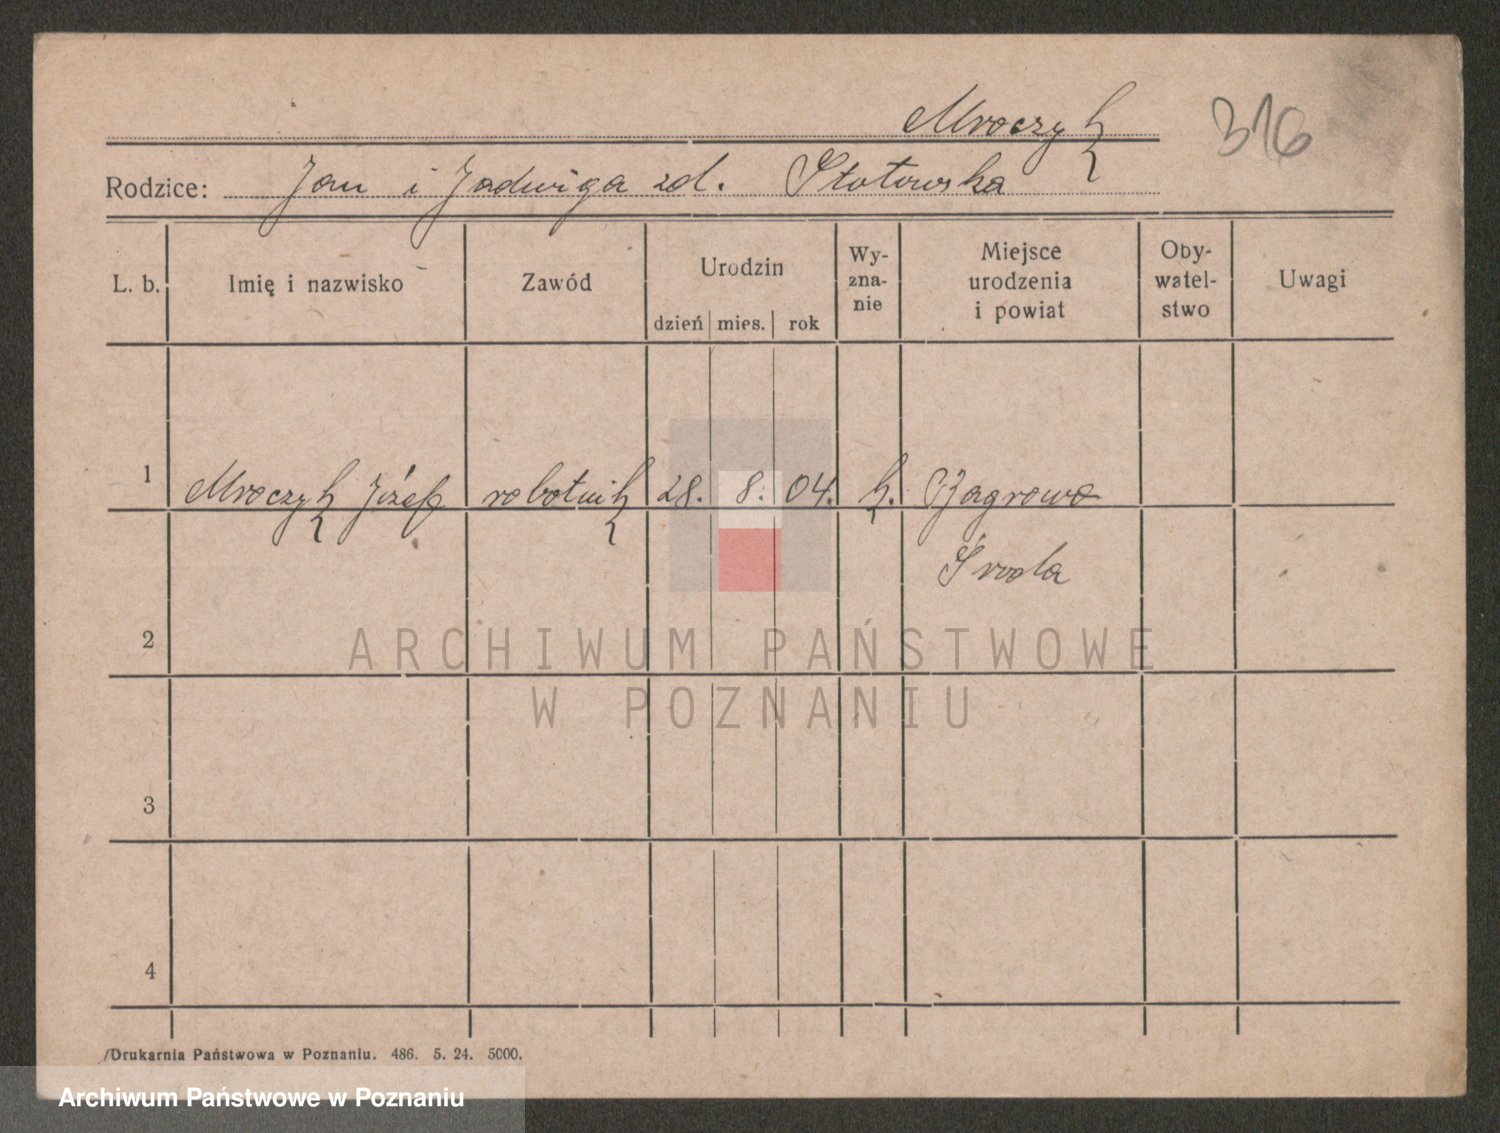 Mroczyk 316
Rodzice: Jan i Jadwiga zd. Słotowska
L. b. Imię i nazwisko Zawód Urodzin dzień mies. rok Wy-zna-nie Miejsce urodzenia i powiat Oby-watel-stwo Uwagi
1 Mroczyk Józef robotnik 28. 8. 04. k. Zagrowo
Środa
2
ARCHIWUM PAŃSTWOWE
W POZNANIU
3
4
Drukarnia Państwowa w Poznaniu. 486. 5. 24. 5000.
Archiwum Państwowe w Poznaniu